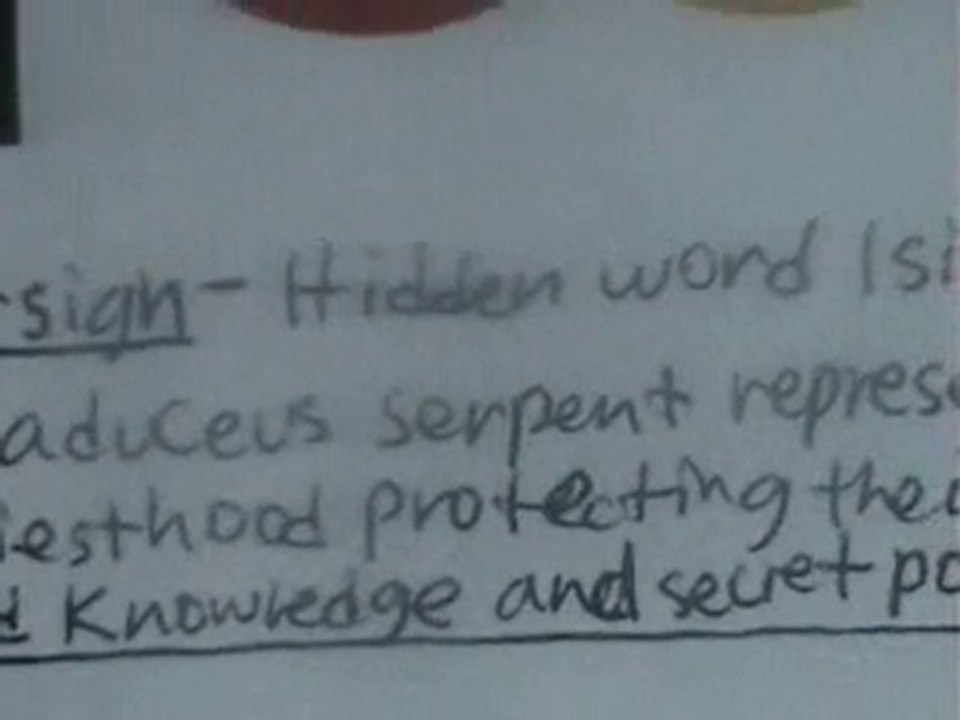 -sign - Hidden word Isi
aduceus serpent repres
iesthood protecting the
d Knowledge and secret po